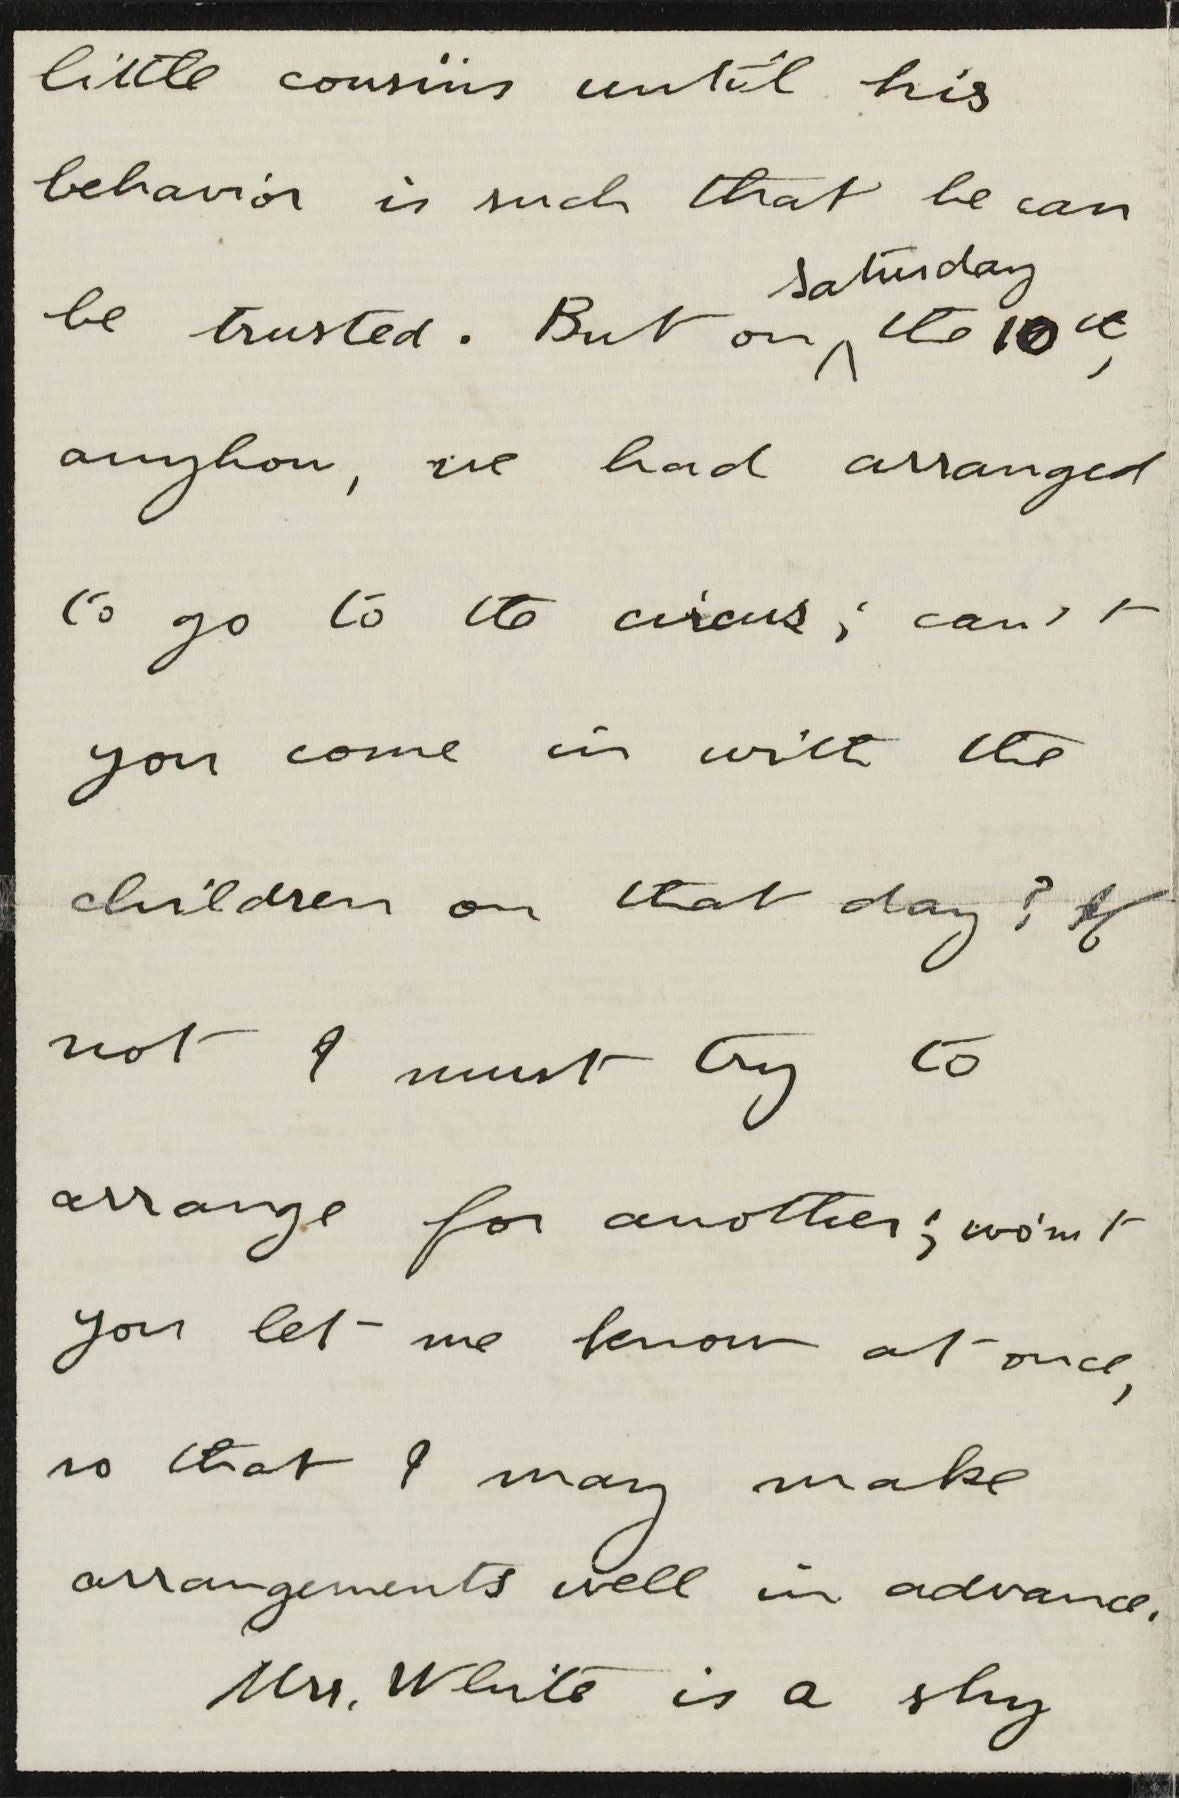 little cousins until his
behavior is such that he can
be trusted. But on ^ saturday the 10th,
anyhow, we had arranged
to go to the circus; can't
you come in with the
children on that day? If
not I must try to
arrange for another; won't
you let me know at once,
so that I may make
arrangements well in advance.
Mrs. White is a shy